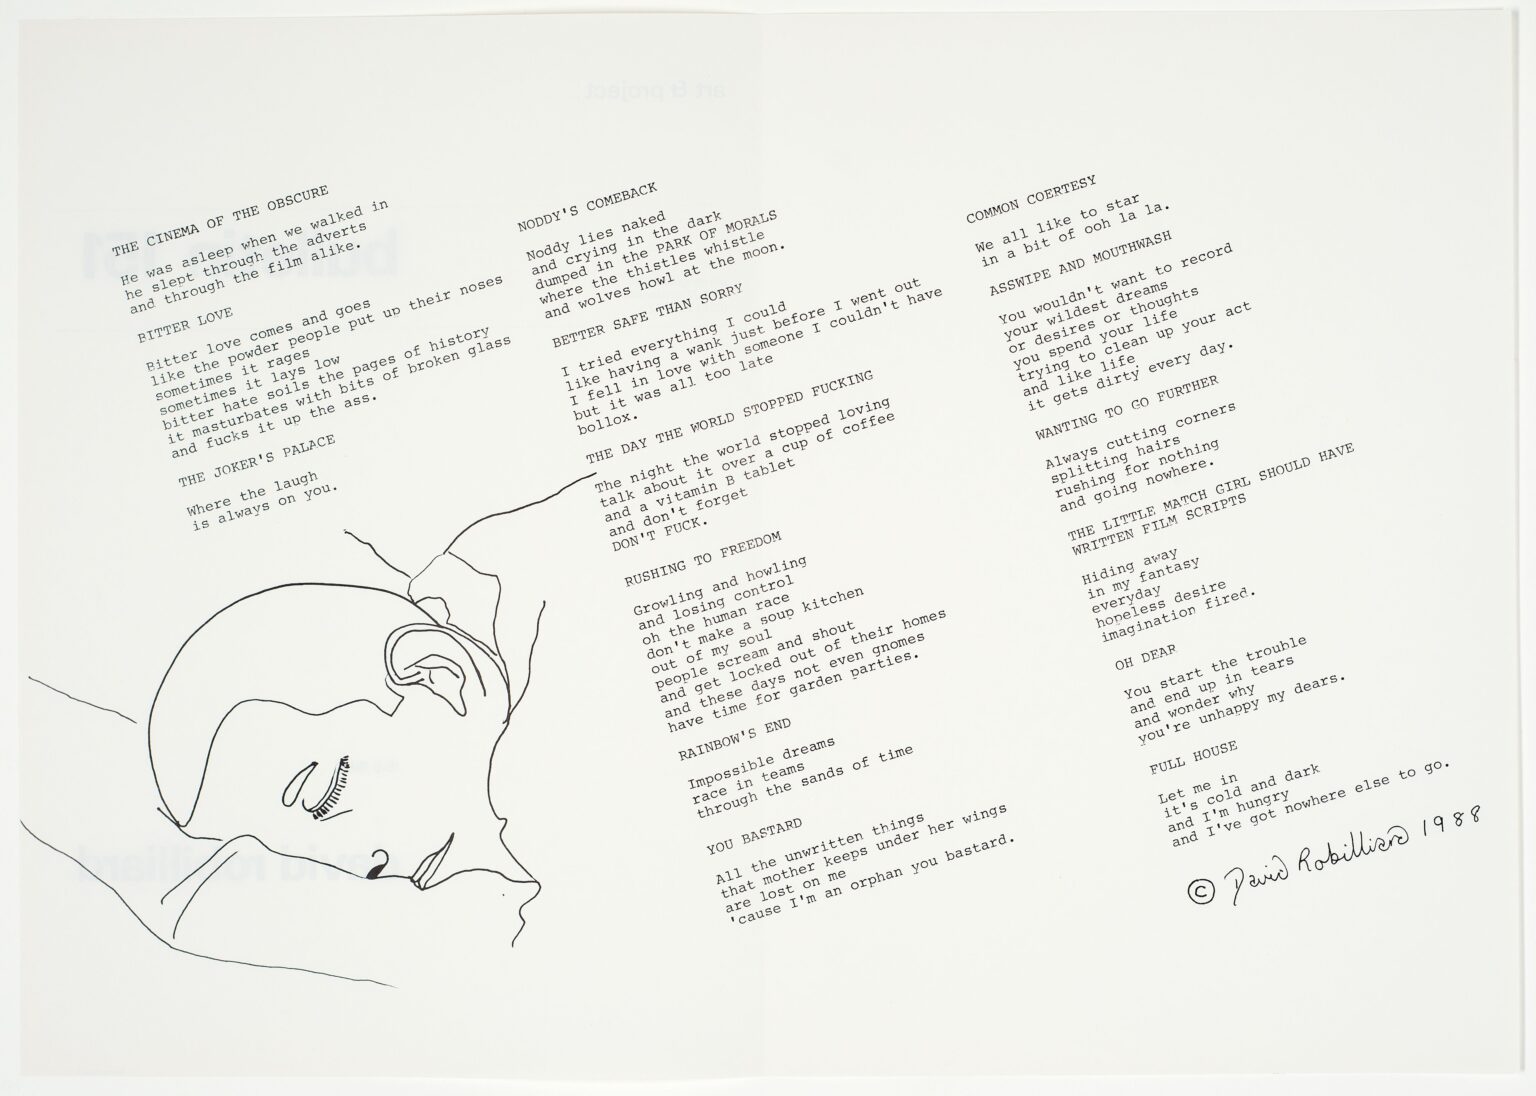 THE CINEMA OF THE OBSCURE
He was asleep when we walked in
he slept through the adverts
and through the film alike.
BITTER LOVE
Bitter love comes and goes
like the powder people put up their noses
sometimes it rages
sometimes it lays low
bitter hate soils the pages of history
it masturbates with bits of broken glass
and fucks it up the ass.
THE JOKER'S PALACE
Where the laugh
is always on you.
NODDY'S COMEBACK
Noddy lies naked
and crying in the dark
dumped in the PARK OF MORALS
where the thistles whistle
and wolves howl at the moon.
BETTER SAFE THAN SORRY
I tried everything I could
like having a wank just before I went out
I fell in love with someone I couldn't have
but it was all too late
bollox.
THE DAY THE WORLD STOPPED FUCKING
The night the world stopped loving
talk about it over a cup of coffee
and a vitamin B tablet
and don't forget
DON'T FUCK.
RUSHING TO FREEDOM
Growling and howling
and losing control
oh the human race
don't make a soup kitchen
out of my soul
people scream and shout
and get locked out of their homes
and these days not even gnomes
have time for garden parties.
RAINBOW'S END
Impossible dreams
race in teams
through the sands of time
YOU BASTARD
All the unwritten things
that mother keeps under her wings
are lost on me
'cause I'm an orphan you bastard.
COMMON COERTESY
We all like to star
in a bit of ooh la la.
ASSWIPE AND MOUTHWASH
You wouldn't want to record
your wildest dreams
or desires or thoughts
you spend your life
trying to clean up your act
and like life
it gets dirty every day.
WANTING TO GO FURTHER
Always cutting corners
splitting hairs
rushing for nothing
and going nowhere.
THE LITTLE MATCH GIRL SHOULD HAVE
WRITTEN FILM SCRIPTS
Hiding away
in my fantasy
everyday
hopeless desire
imagination fired.
OH DEAR
You start the trouble
and end up in tears
and wonder why
you're unhappy my dears.
FULL HOUSE
Let me in
it's cold and dark
and I'm hungry
and I've got nowhere else to go.
© David Robilliard 1988
art & project
bulletin 151
david robilliard